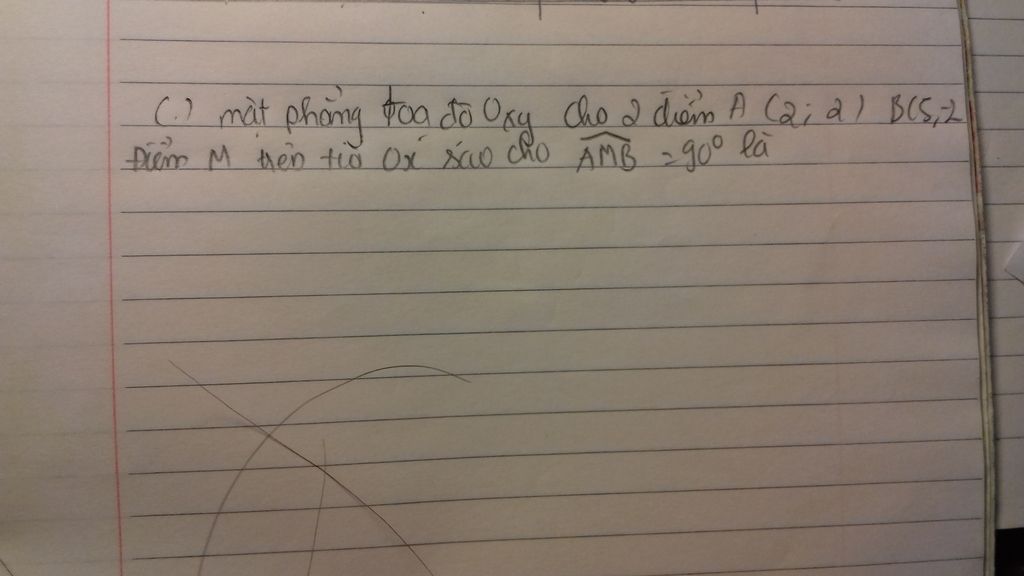 (.) mặt phẳng tọa độ Oxy cho 2 điểm A (2; 2) B(5;-2
Điểm M trên tia Ox sao cho AMB = 90° là